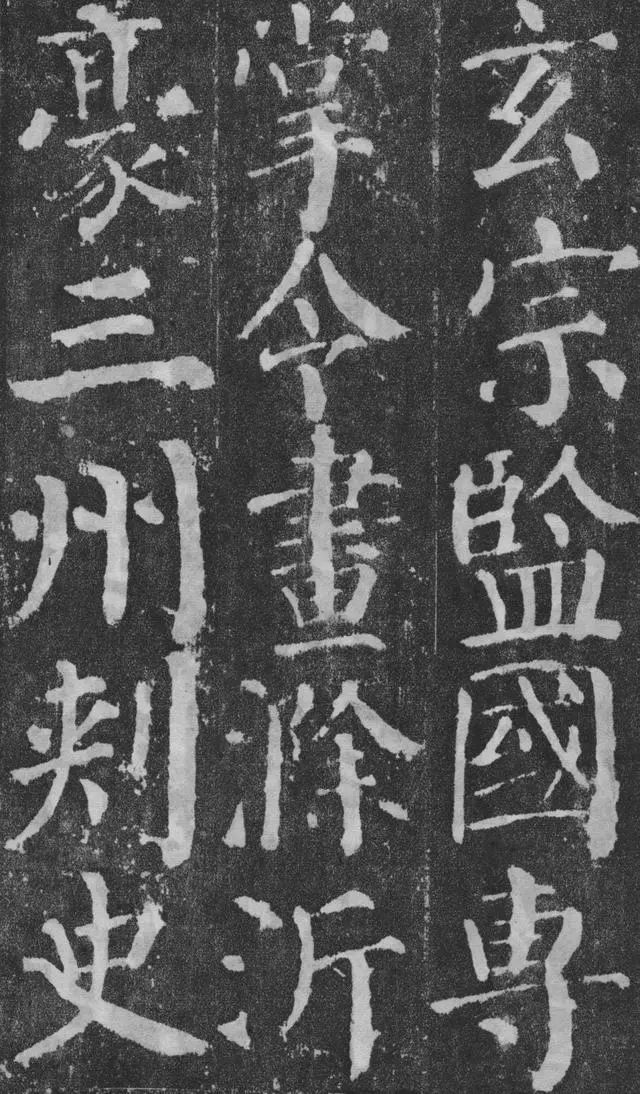 玄宗監國專
掌令畫滁沂
豪三州刺史